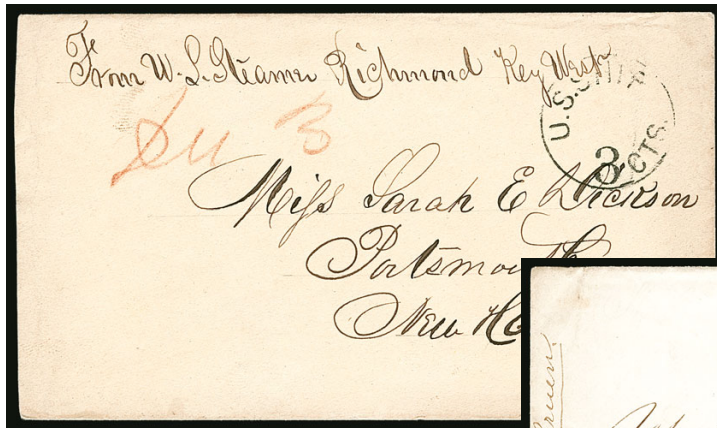 From U.S. Steamer Richmond Key West
U.S. SHIP
3 CTS.
Due 3
Miss Sarah E Dickson
Portsmouth
New